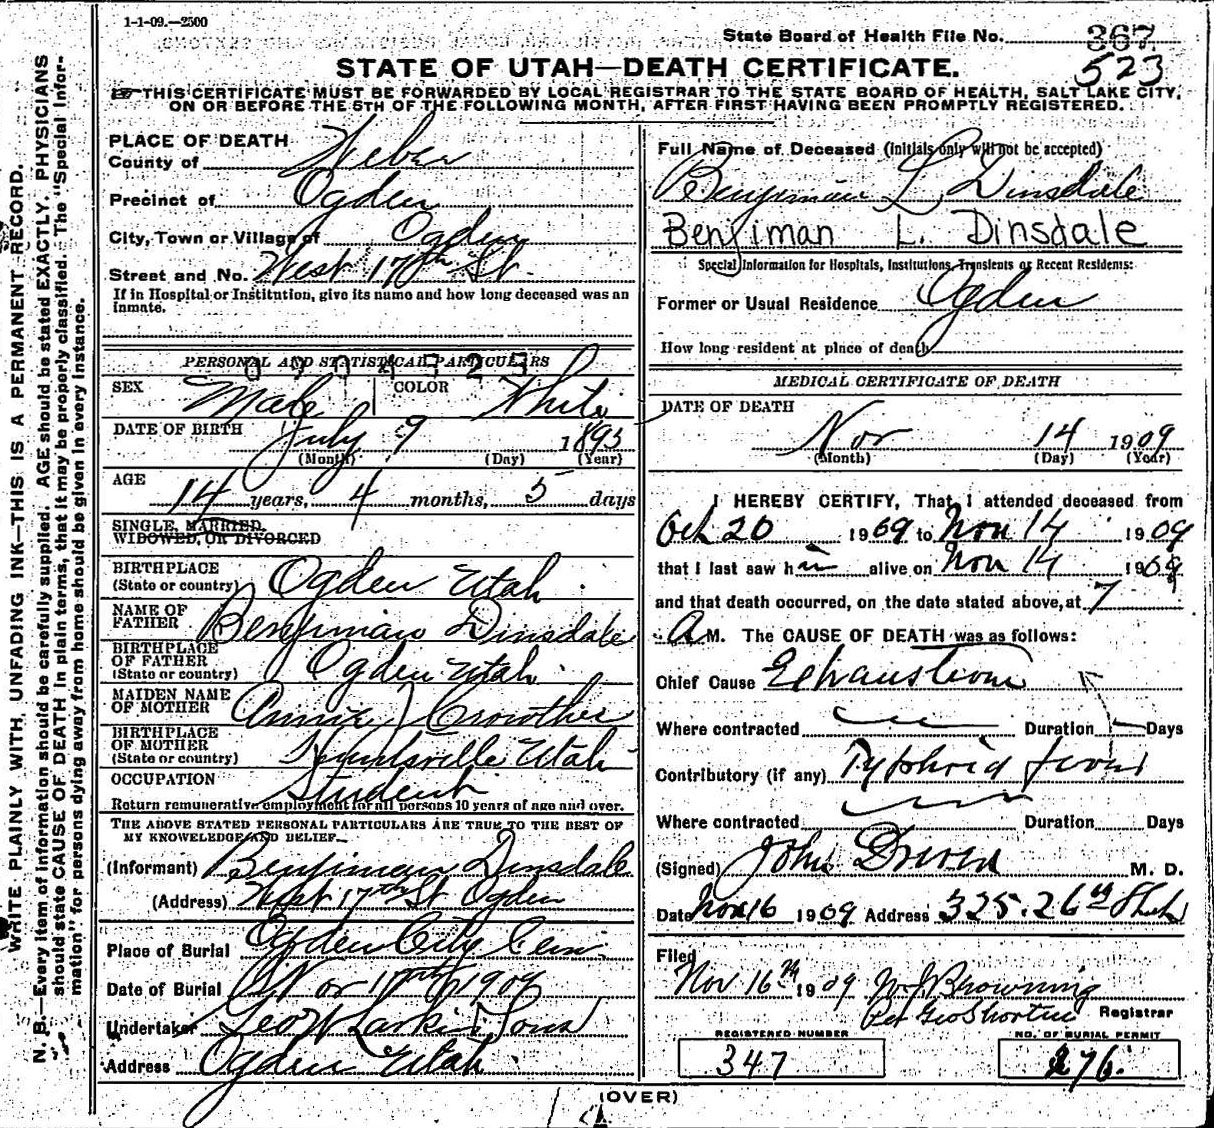 1-1-09.—2500
State Board of Health File No. 367
523
STATE OF UTAH—DEATH CERTIFICATE.
THIS CERTIFICATE MUST BE FORWARDED BY LOCAL REGISTRAR TO THE STATE BOARD OF HEALTH, SALT LAKE CITY,
ON OR BEFORE THE 5TH OF THE FOLLOWING MONTH, AFTER FIRST HAVING BEEN PROMPTLY REGISTERED.
WRITE PLAINLY WITH UNFADING INK—THIS IS A PERMANENT RECORD.
N. B.—Every item of information should be carefully supplied. AGE should be stated EXACTLY. PHYSICIANS
should state CAUSE OF DEATH in plain terms, that it may be properly classified. The "Special Infor-
mation" for persons dying away from home should be given in every instance.
PLACE OF DEATH
County of Weber
Precinct of Ogden
City, Town or Village of Ogden
Street and No. West 17th St.
If in Hospital or Institution, give its name and how long deceased was an
inmate.
PERSONAL AND STATISTICAL PARTICULARS
SEX Male COLOR White
DATE OF BIRTH July 9 1895
(Month) (Day) (Year)
AGE 14 years, 4 months, 5 days
SINGLE, MARRIED,
WIDOWED, OR DIVORCED
BIRTHPLACE
(State or country) Ogden Utah
NAME OF
FATHER Benjiman Dinsdale
BIRTHPLACE
OF FATHER
(State or country) Ogden Utah
MAIDEN NAME
OF MOTHER Annie Crowther
BIRTHPLACE
OF MOTHER
(State or country) Huntsville Utah
OCCUPATION Student
Return remunerative employment for all persons 10 years of age and over.
THE ABOVE STATED PERSONAL PARTICULARS ARE TRUE TO THE BEST OF
MY KNOWLEDGE AND BELIEF
(Informant) Benjiman Dinsdale
(Address) West 17th St Ogden
Place of Burial Ogden City Cem.
Date of Burial Nov 17th 1909
Undertaker Geo W Larkin & Sons
Address Ogden Utah
Full Name of Deceased (initials only will not be accepted)
Benjiman L Dinsdale
Benjiman L. Dinsdale
Special Information for Hospitals, Institutions, Transients or Recent Residents:
Former or Usual Residence Ogden
How long resident at place of death
MEDICAL CERTIFICATE OF DEATH
DATE OF DEATH
Nov 14 1909
(Month) (Day) (Year)
I HEREBY CERTIFY, That I attended deceased from
Oct 20 1909 to Nov 14 1909
that I last saw him alive on Nov 14 1909
and that death occurred, on the date stated above, at 7
A M. The CAUSE OF DEATH was as follows:
Chief Cause Exhaustion
Where contracted Duration Days
Contributory (if any) Typhoid fever
Where contracted Duration Days
(Signed) John Driver M. D.
Date Nov 16 1909 Address 325. 26th Street
Filed
Nov 16th 1909 Browning
Per Geo Shorten Registrar
REGISTERED NUMBER
347
NO. OF BURIAL PERMIT
276.
(OVER)